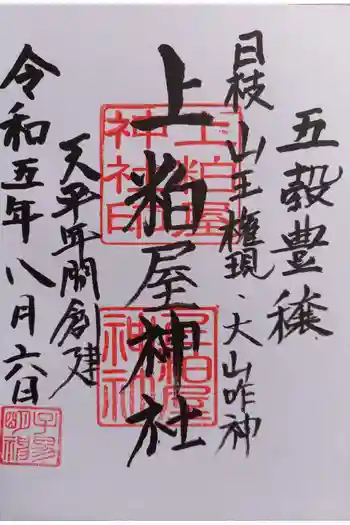 五穀豊穣
日枝山王権現・大山咋神
上粕屋神社
天平年間創建
令和五年八月六日
上粕屋
神社印